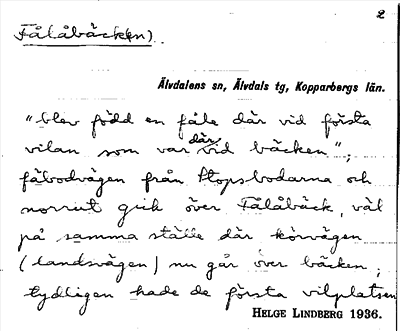 2
Fålåbäck(en).
Älvdalens sn, Älvdals tg, Kopparbergs län.
"blev född en fåle där vid första
vilan som var där vid bäcken";
fäbodvägen från Stopsbodarna och
norrut gick över Fålåbäck, väl
på samma ställe där körvägen
(landsvägen) nu går över bäcken;
tydligen hade de första vilplatsen
HELGE LINDBERG 1936.